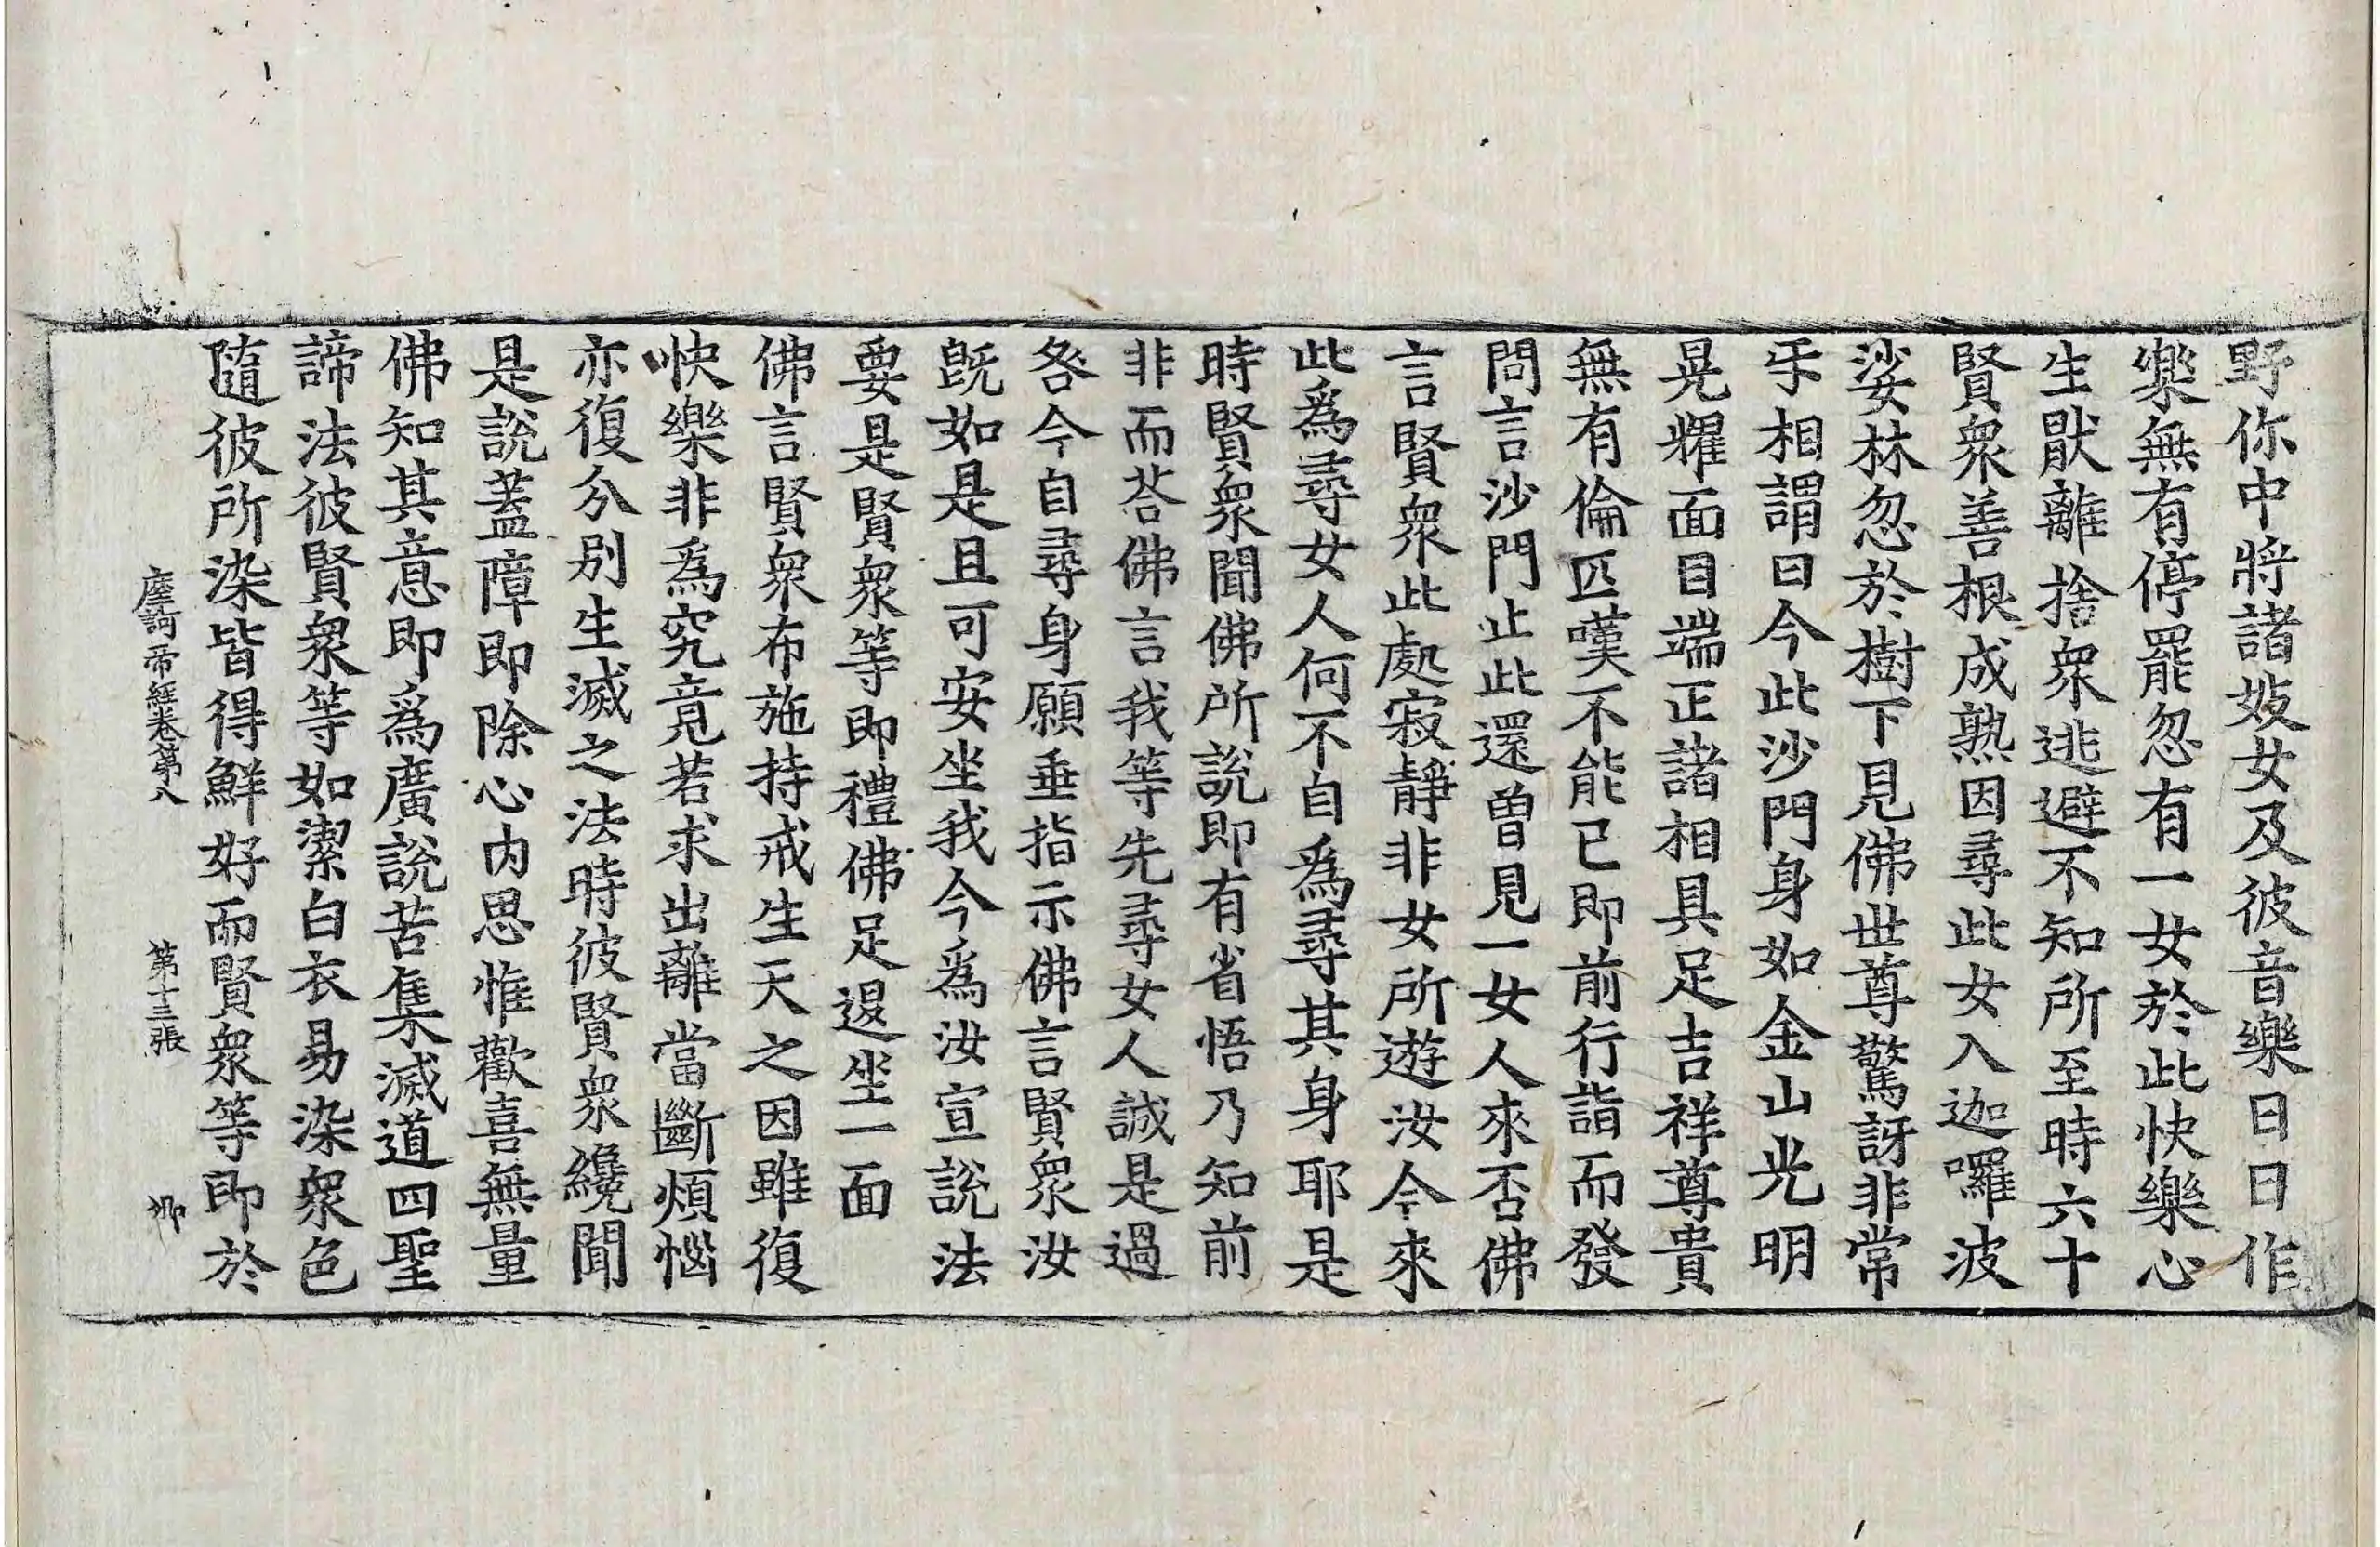 野你中將諸妓女及彼音樂日日作
樂無有停罷忽有一女於此快樂心
生猒離捨衆逃避不知所至時六十
賢衆善根成熟因尋此女入迦囉波
娑林忽於樹下見佛世尊驚訝非常
㸦相謂曰今此沙門身如金山光明
晃耀面目端正諸相具足吉祥尊貴
無有倫匹嘆不能已即前行詣而發
問言沙門止此還曾見一女人來否佛
言賢衆此處寂靜非女所遊汝今來
此爲尋女人何不自爲尋其身耶是
時賢衆聞佛所說即有省悟乃知前
非而荅佛言我等先尋女人誠是過
咎今自尋身願垂指示佛言賢衆汝
旣如是且可安坐我今爲汝宣說法
要是賢衆等即禮佛足退坐一面
佛言賢衆布施持戒生天之因雖復
快樂非爲究竟若求出離當斷煩惱
亦復分别生滅之法時彼賢衆纔聞
是說蓋障即除心内思惟歡喜無量
佛知其意即爲廣說苦集滅道四聖
諦法彼賢衆等如潔白衣易染衆色
隨彼所染皆得鮮好而賢衆等即於
摩訶帝經卷第八 第十三張